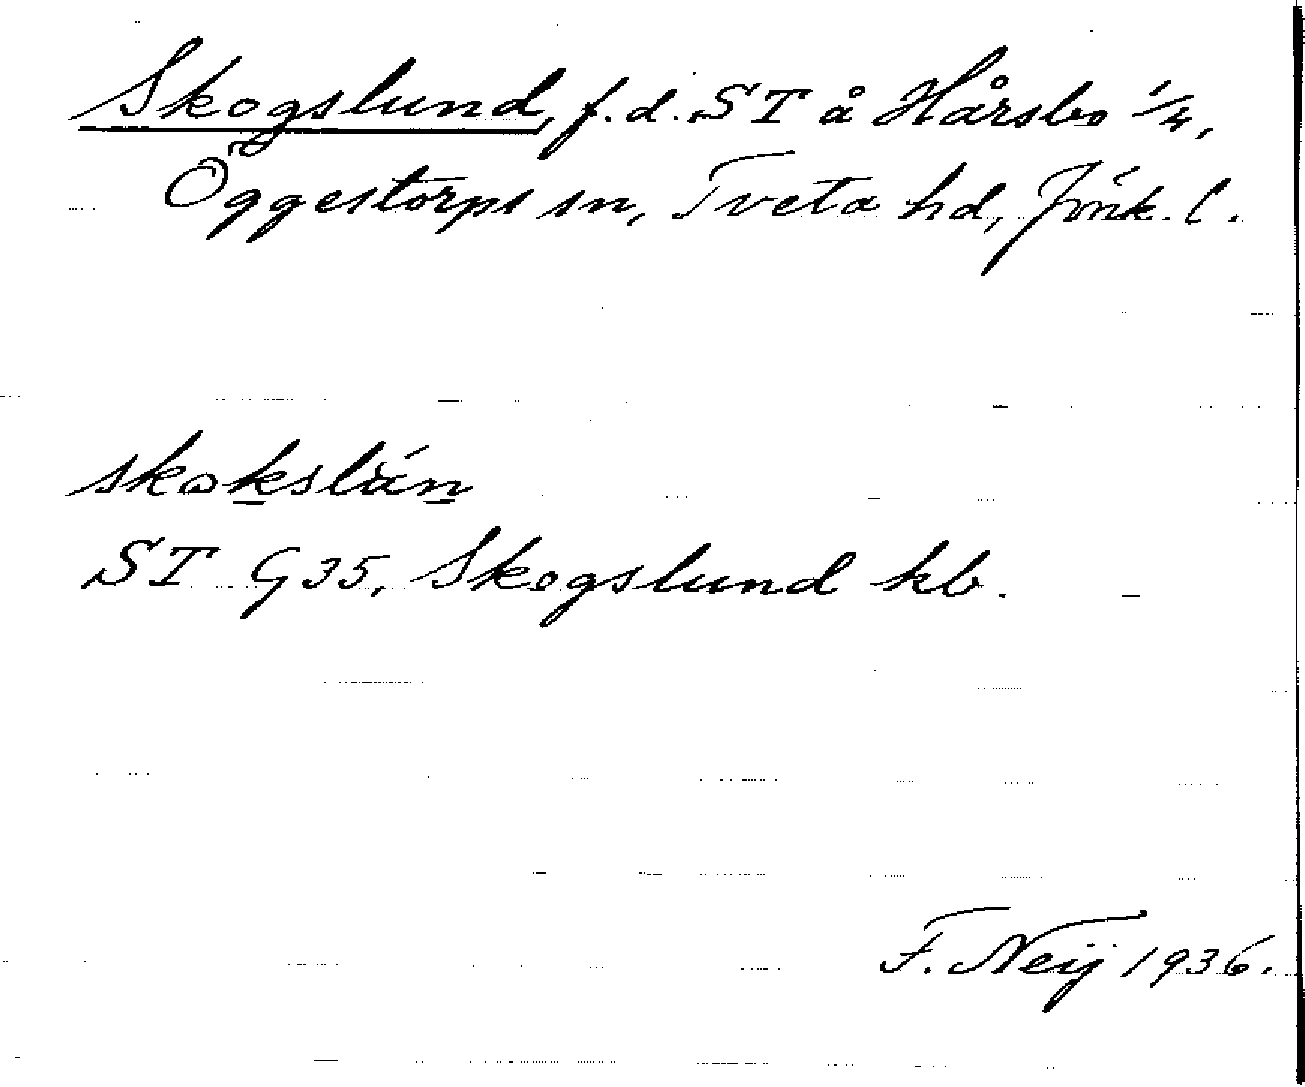 Skogslund, f.d. ST å Hårsbo 1/4,
Öggestorps sn, Tveta hd, Jönk. l.
skokslán
ST G 35, Skogslund kb.
F. Neij 1936.